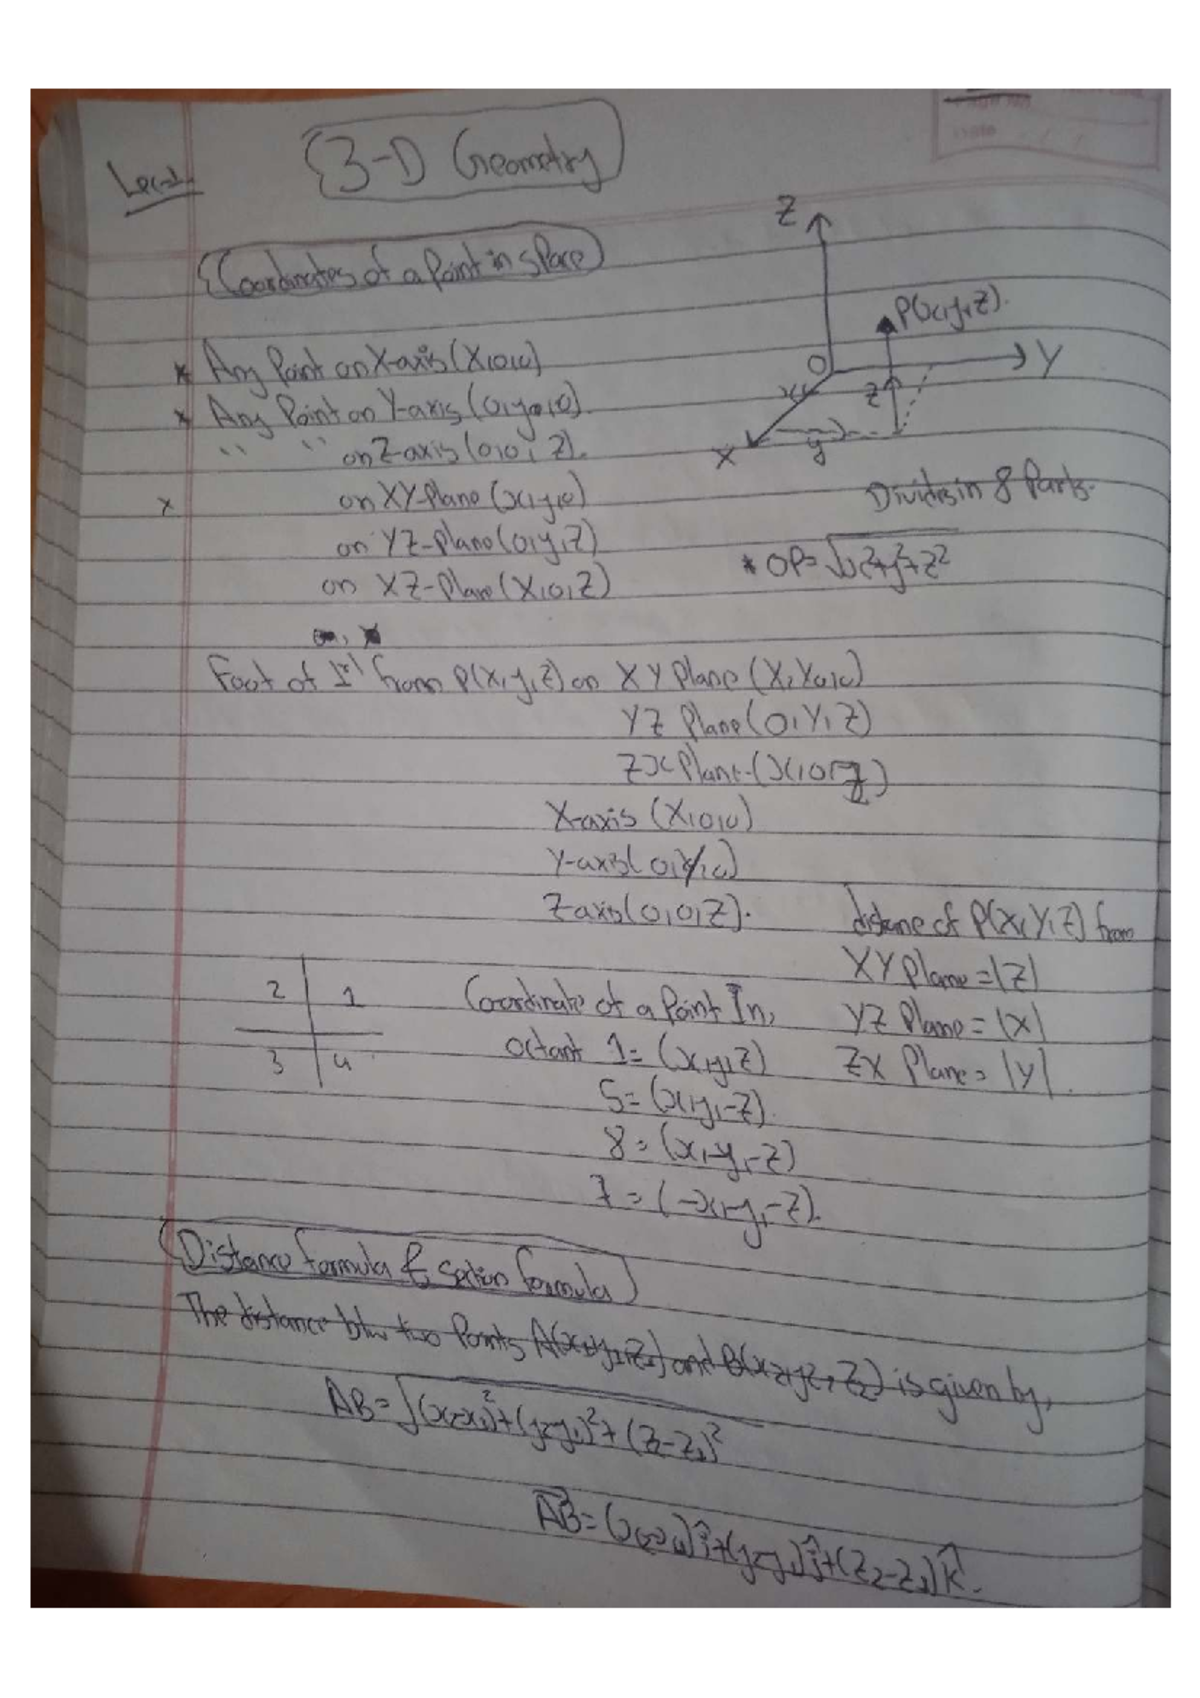 Lec-1
3-D Geometry
Coordinates of a Point in space
Z
P(x,y,z).
O
Y
x
z
y
X
* Any Point on X-axis (X,0,0)
* Any Point on Y-axis (0,y,0)
" " on Z-axis (0,0, Z).
x on XY-Plane (x,y,0)
on YZ-Plane (0,y,Z)
on XZ-Plane (X,0,Z)
Divides in 8 Parts.
* OP = √x²+y²+z²
Foot of ⊥ʳ from P(X,y,Z) on XY Plane (X,Y,0)
YZ Plane (0,Y,Z)
Zx Plane-(x,0,z)
X-axis (X,0,0)
Y-axis (0,Y,0)
Z axis (0,0,Z).
distane of P(X,Y,Z) from
XY Plane = |Z|
YZ Plane = |X|
ZX Plane = |Y|.
2 1
3 4
Coordinate of a Point In,
octant 1 = (x,y,Z)
5 = (x,y,-Z).
8 = (x,-y,-Z)
7 = (-x,-y,-Z).
Distance formula & section formula
The distance btw two Points A(x₁,y₁,Z₁) and B(x₂,y₂,Z₂) is given by,
AB = √(x₂-x₁)²+(y₂-y₁)²+(Z₂-Z₁)²
AB⃗ = (x₂-x₁)î+(y₂-y₁)ĵ+(Z₂-Z₁)k̂.